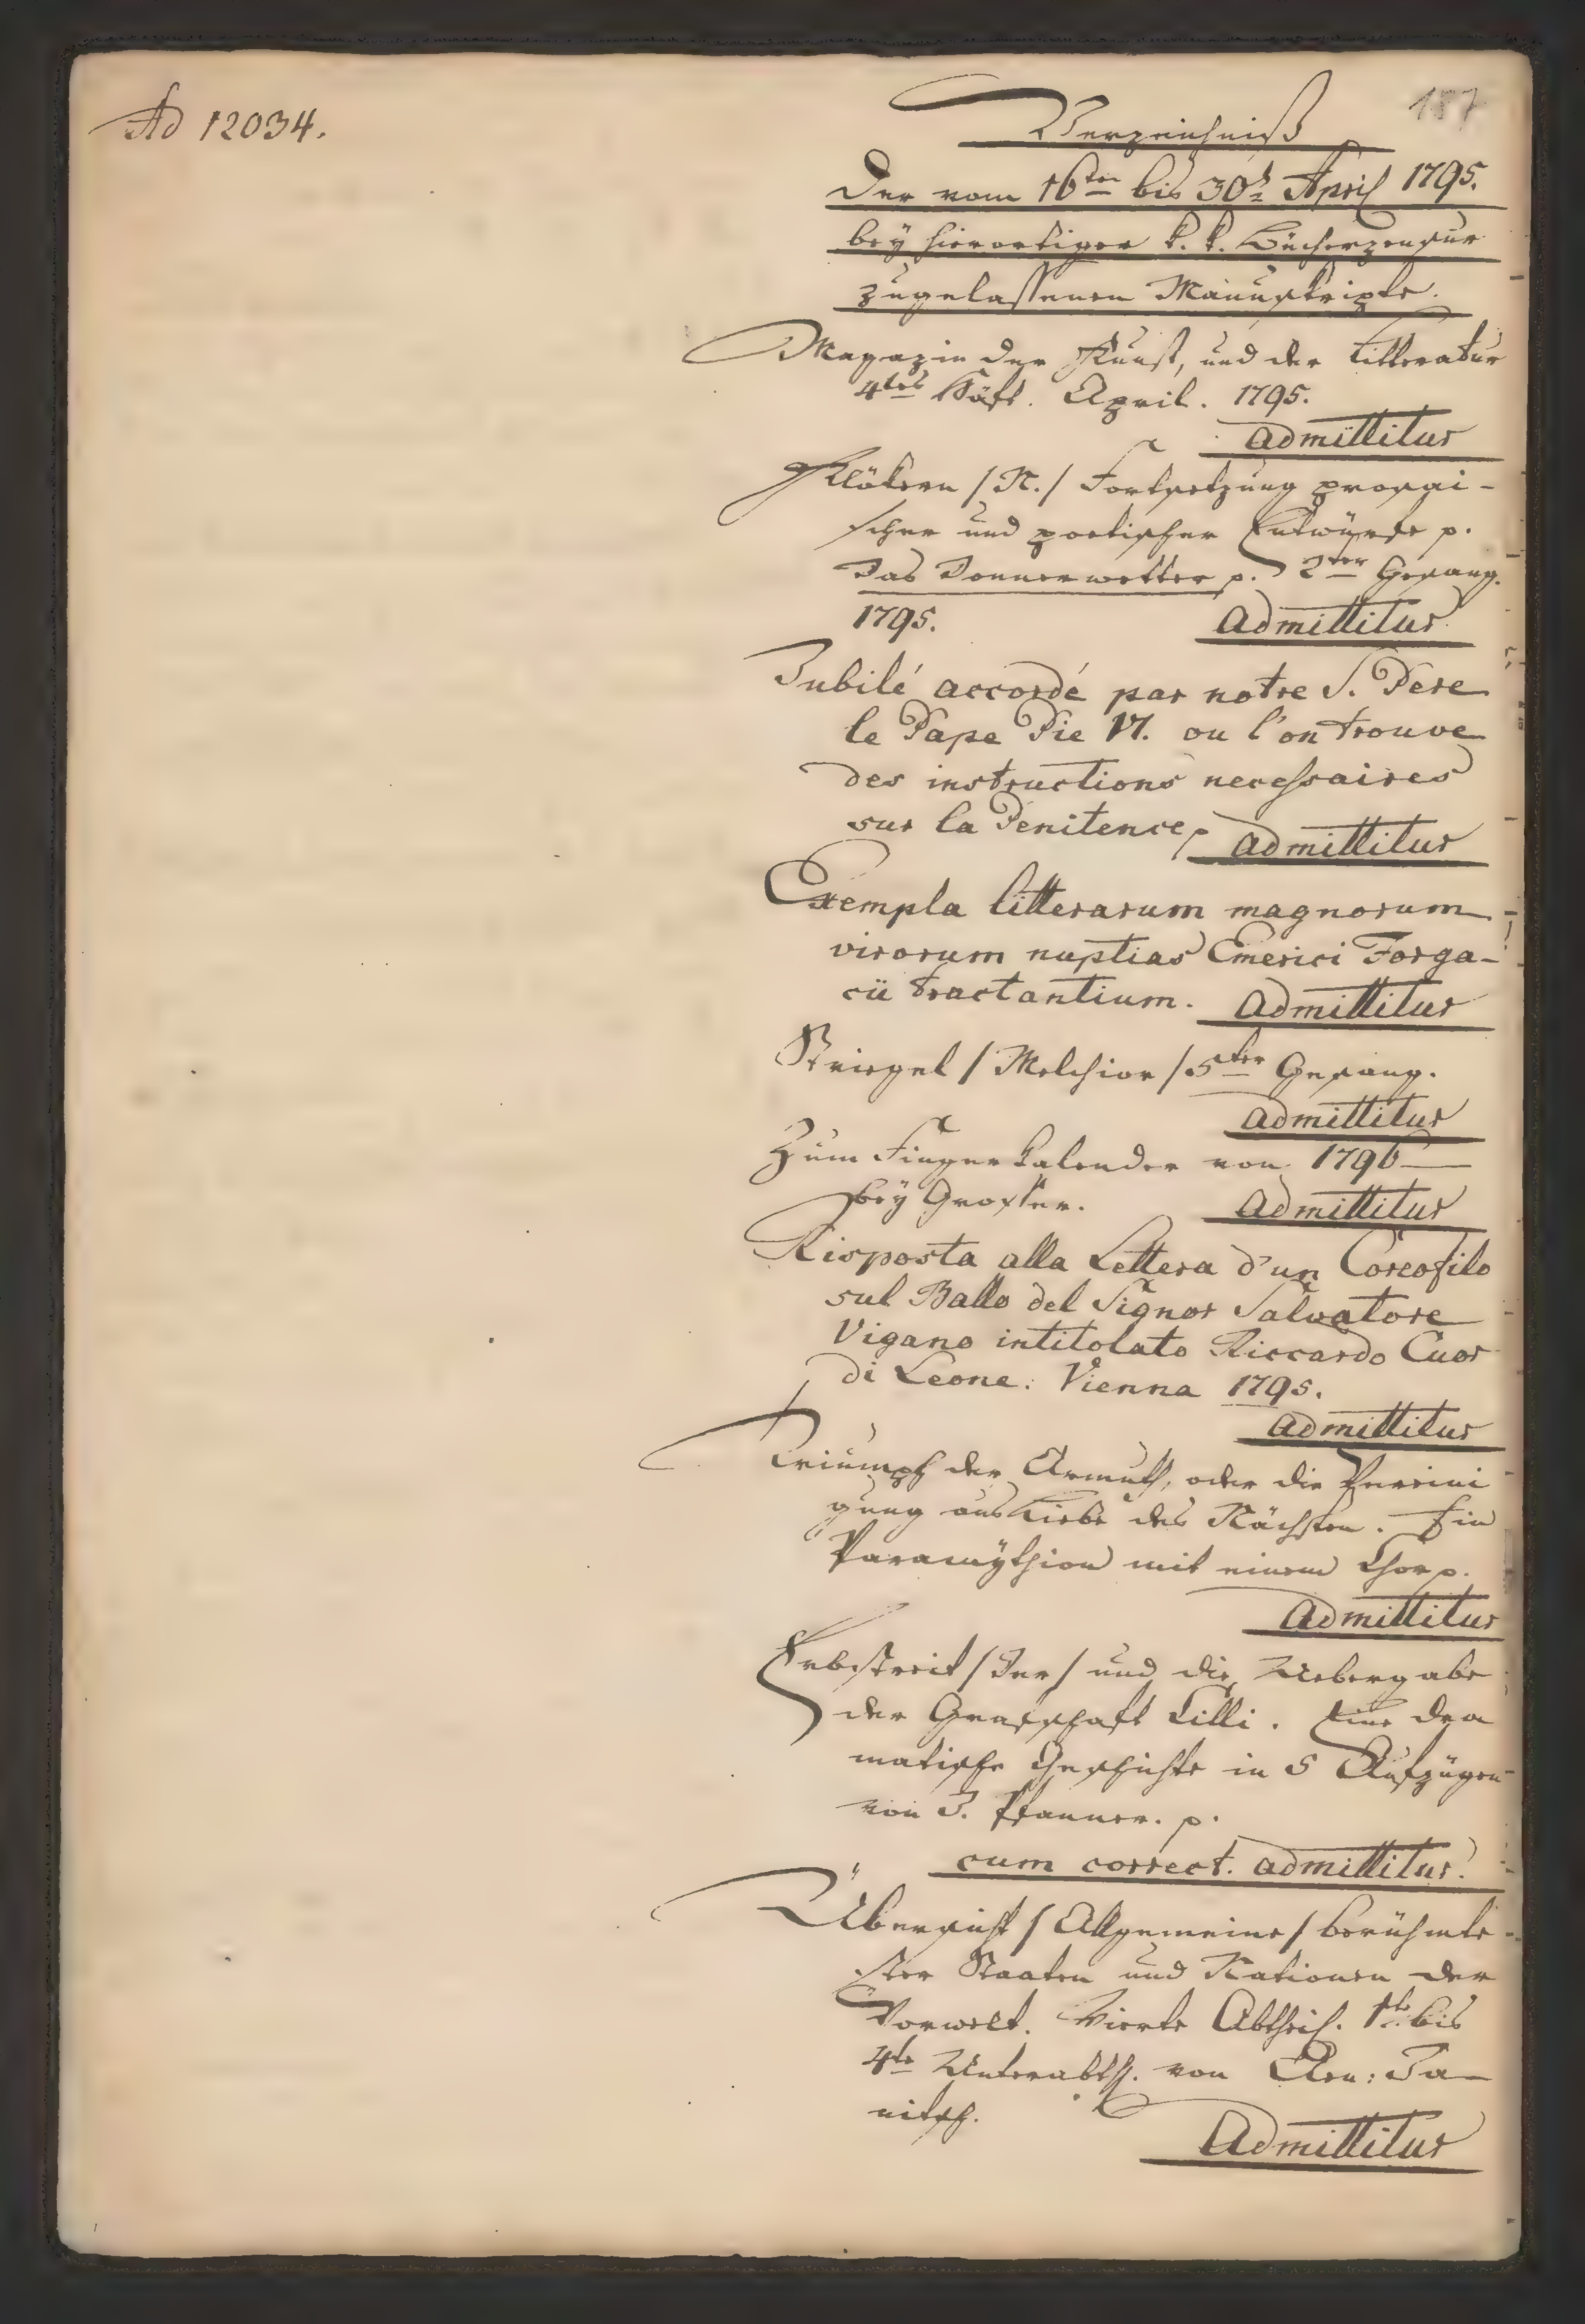 Ad 12034.
187
Verzeichniß
der vom 16ten bis 30t April 1795.
bey hierortiger k. k. Bücherzensur
zugelassenen Manuskripte.
Magazin der Kunst, und der Litteratur
4tes Häft. April. 1795.
Admittitur
/N./ Fortsetzung prosai-
scher und poetischer Entwürfe p.
Das Donnerwetter p. 2ter Gesang.
1795. Admittitur
Jubilé accordé par notre S. Pere
le Pape Pie VI. ou l'on trouve
des instructions necessaires
sur la Penitence, Admittitur
Exempla litterarum magnorum
virorum nuptias Emerici Forga-
cii tractantium. Admittitur
Striegel /Melchior/ 5ter Gesang.
Admittitur
Zum Fingerkalender von 1796
bey Großer. Admittitur
Risposta alla Lettera d'un Coreofilo
sul Ballo del Signor Salvatore
Vigano intitolato Riccardo Cuor
di Leone: Vienna 1795.
Admittitur
Triumph der Armuth, oder die Vereini
gung aus Liebe des Nächsten. Ein
Paramÿthion mit einem Chor p.
Admittitur
Erbstreit /Der/ und die Uebergabe
der Grafschaft Cilli. Eine dra
matische Geschichte in 5 Aufzügen
von J. Pfanner. p.
cum correct. admittitur.
Übersicht /Allgemeine/ berühmte-
ster Staaten und Nationen der
Vorwelt. Vierte Abtheil. 1te bis
4te Unterabth. von Aen: Ja-
nitsch.
Admittitur